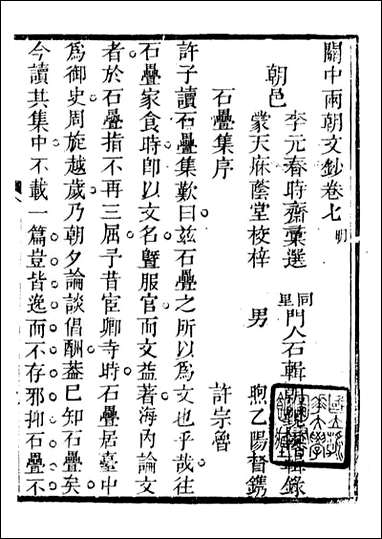 關中兩朝文鈔卷七 明
朝邑
李元春時齋彙選
蒙天庥蔭堂校梓
同里
門人石輯
輯錄
男
煦乙陽督鐫
石疊集序
許宗魯
許子讀石疊集歎曰茲石疊之所以爲文也乎哉往
石疊家食時即以文名暨服官而文益著海內論文
者於石疊指不再三屈予昔宦卿寺時石疊居臺中
爲御史周旋越歲乃朝夕論談倡酬葢已知石疊矣
今讀其集中不載一篇豈皆逸而不存邪抑石疊不